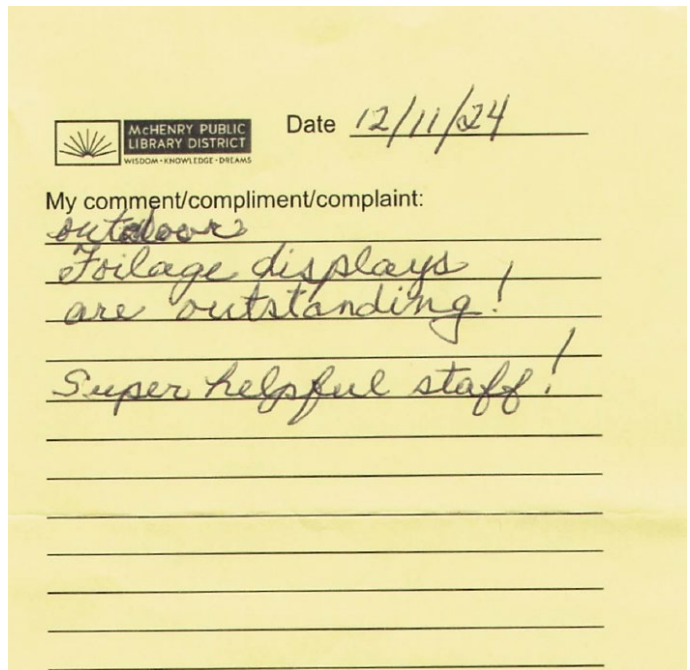 McHENRY PUBLIC
LIBRARY DISTRICT
WISDOM • KNOWLEDGE • DREAMS
Date 12/11/24
My comment/compliment/complaint:
outdoor
Foilage displays
are outstanding!
Super helpful staff!